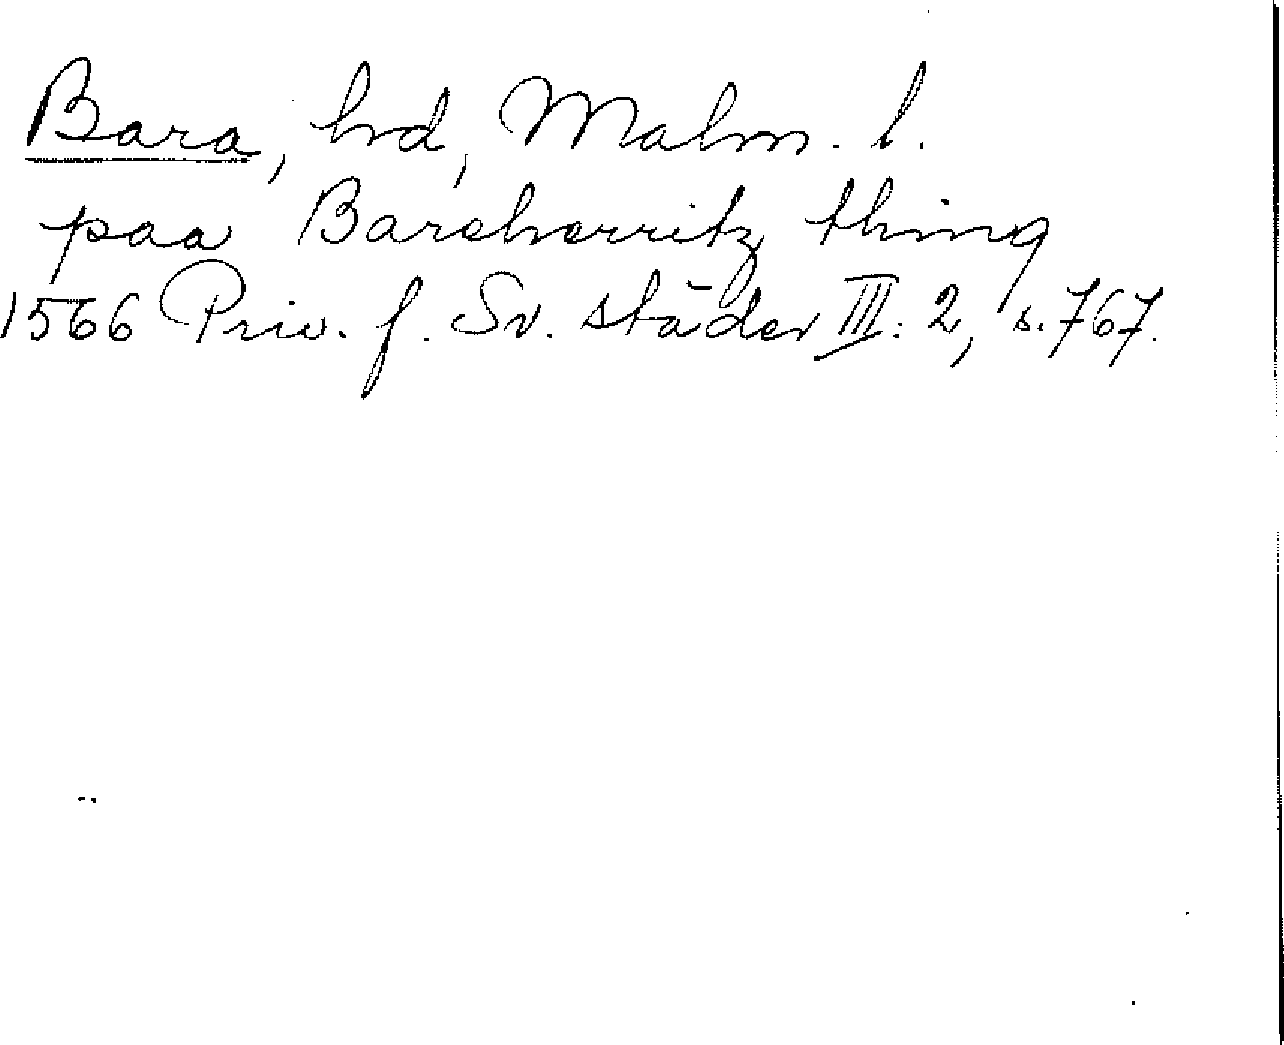 Bara, hrd, Malm. l.
paa Bareherritz thing
1566 Priv. f. Sv. städer III: 2, s. 767.